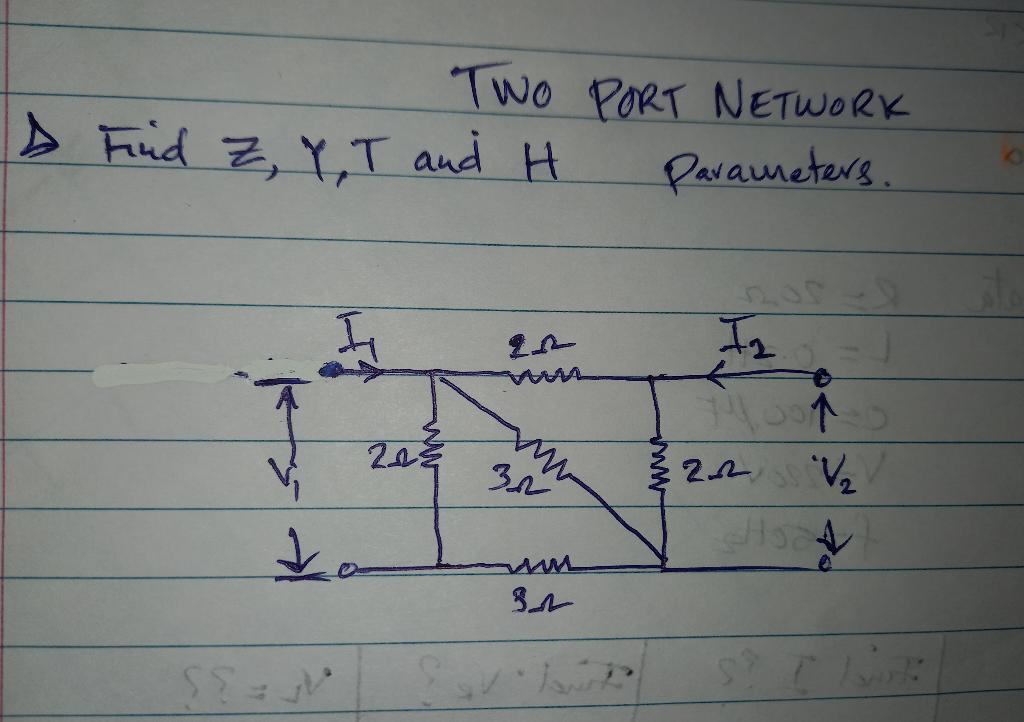 TWO PORT NETWORK
1) Find Z, Y, T and H Parameters.
I1 2Ω I2
2Ω 3Ω 2Ω
V1 V2
3Ω